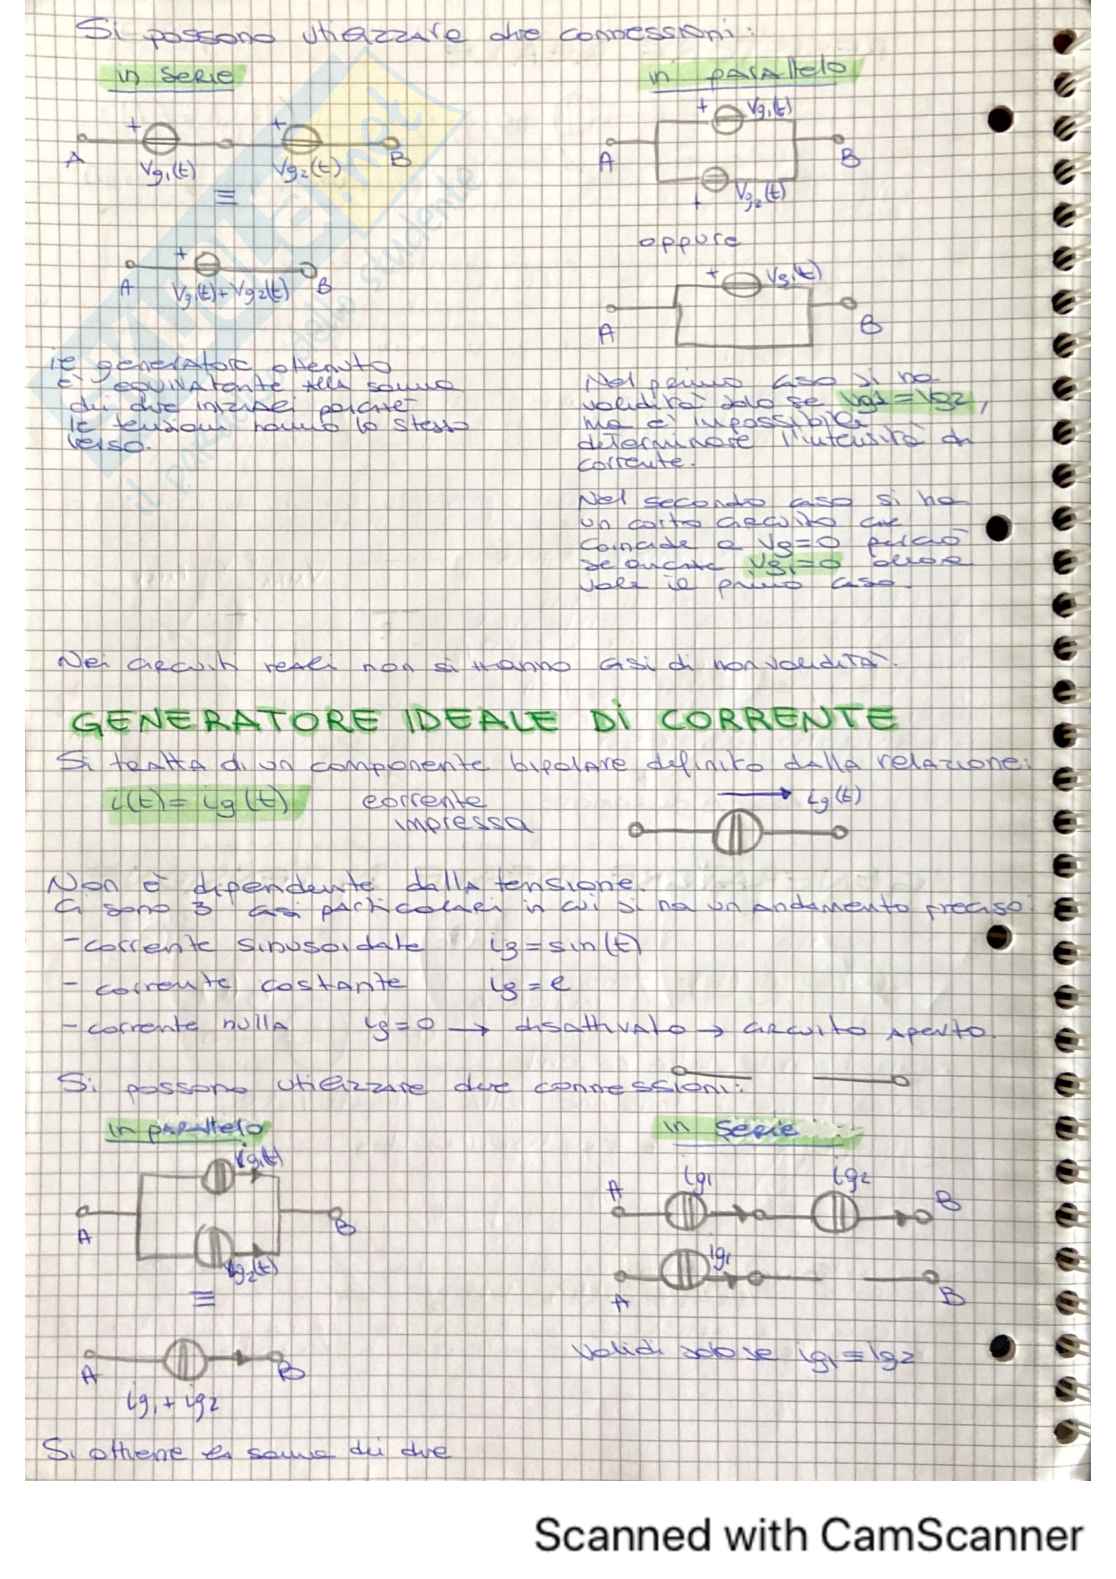 Si possono utilizzare due connessioni:
in serie
in parallelo
+
+
A
Vg1(t)
Vg2(t)
B
≡
+
A
Vg1(t)+Vg2(t)
B
il generatore ottenuto
è equivalente alla somma
dei due iniziali perché
le tensioni hanno lo stesso
verso.
+
Vg1(t)
A
B
+
Vg2(t)
oppure
+
Vg1(t)
A
B
Nel primo caso si ha
validità solo se Vg1=Vg2,
ma è impossibile
determinare l'intensità di
corrente.
Nel secondo caso si ha
un corto circuito che
coincide a Vg=0 perciò
se anche Vg1=0 allora
vale il primo caso.
Nei circuiti reali non si hanno casi di non validità.
GENERATORE IDEALE DI CORRENTE
Si tratta di un componente bipolare definito dalla relazione:
i(t)=ig(t) corrente
impressa
ig(t)
Non è dipendente dalla tensione.
Ci sono 3 casi particolari in cui si ha un andamento preciso:
-corrente sinusoidale ig=sin(t)
- corrente costante ig=e
-corrente nulla ig=0 → disattivato → circuito aperto.
Si possono utilizzare due connessioni:
in parallelo
ig1(t)
A
B
ig2(t)
≡
A
B
ig1+ig2
Si ottiene la somma dei due
in serie
ig1
ig2
A
B
ig1
A
B
validi solo se ig1=ig2
Scanned with CamScanner